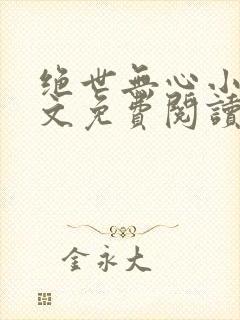 绝世無心小
文免費閱讀
金永大